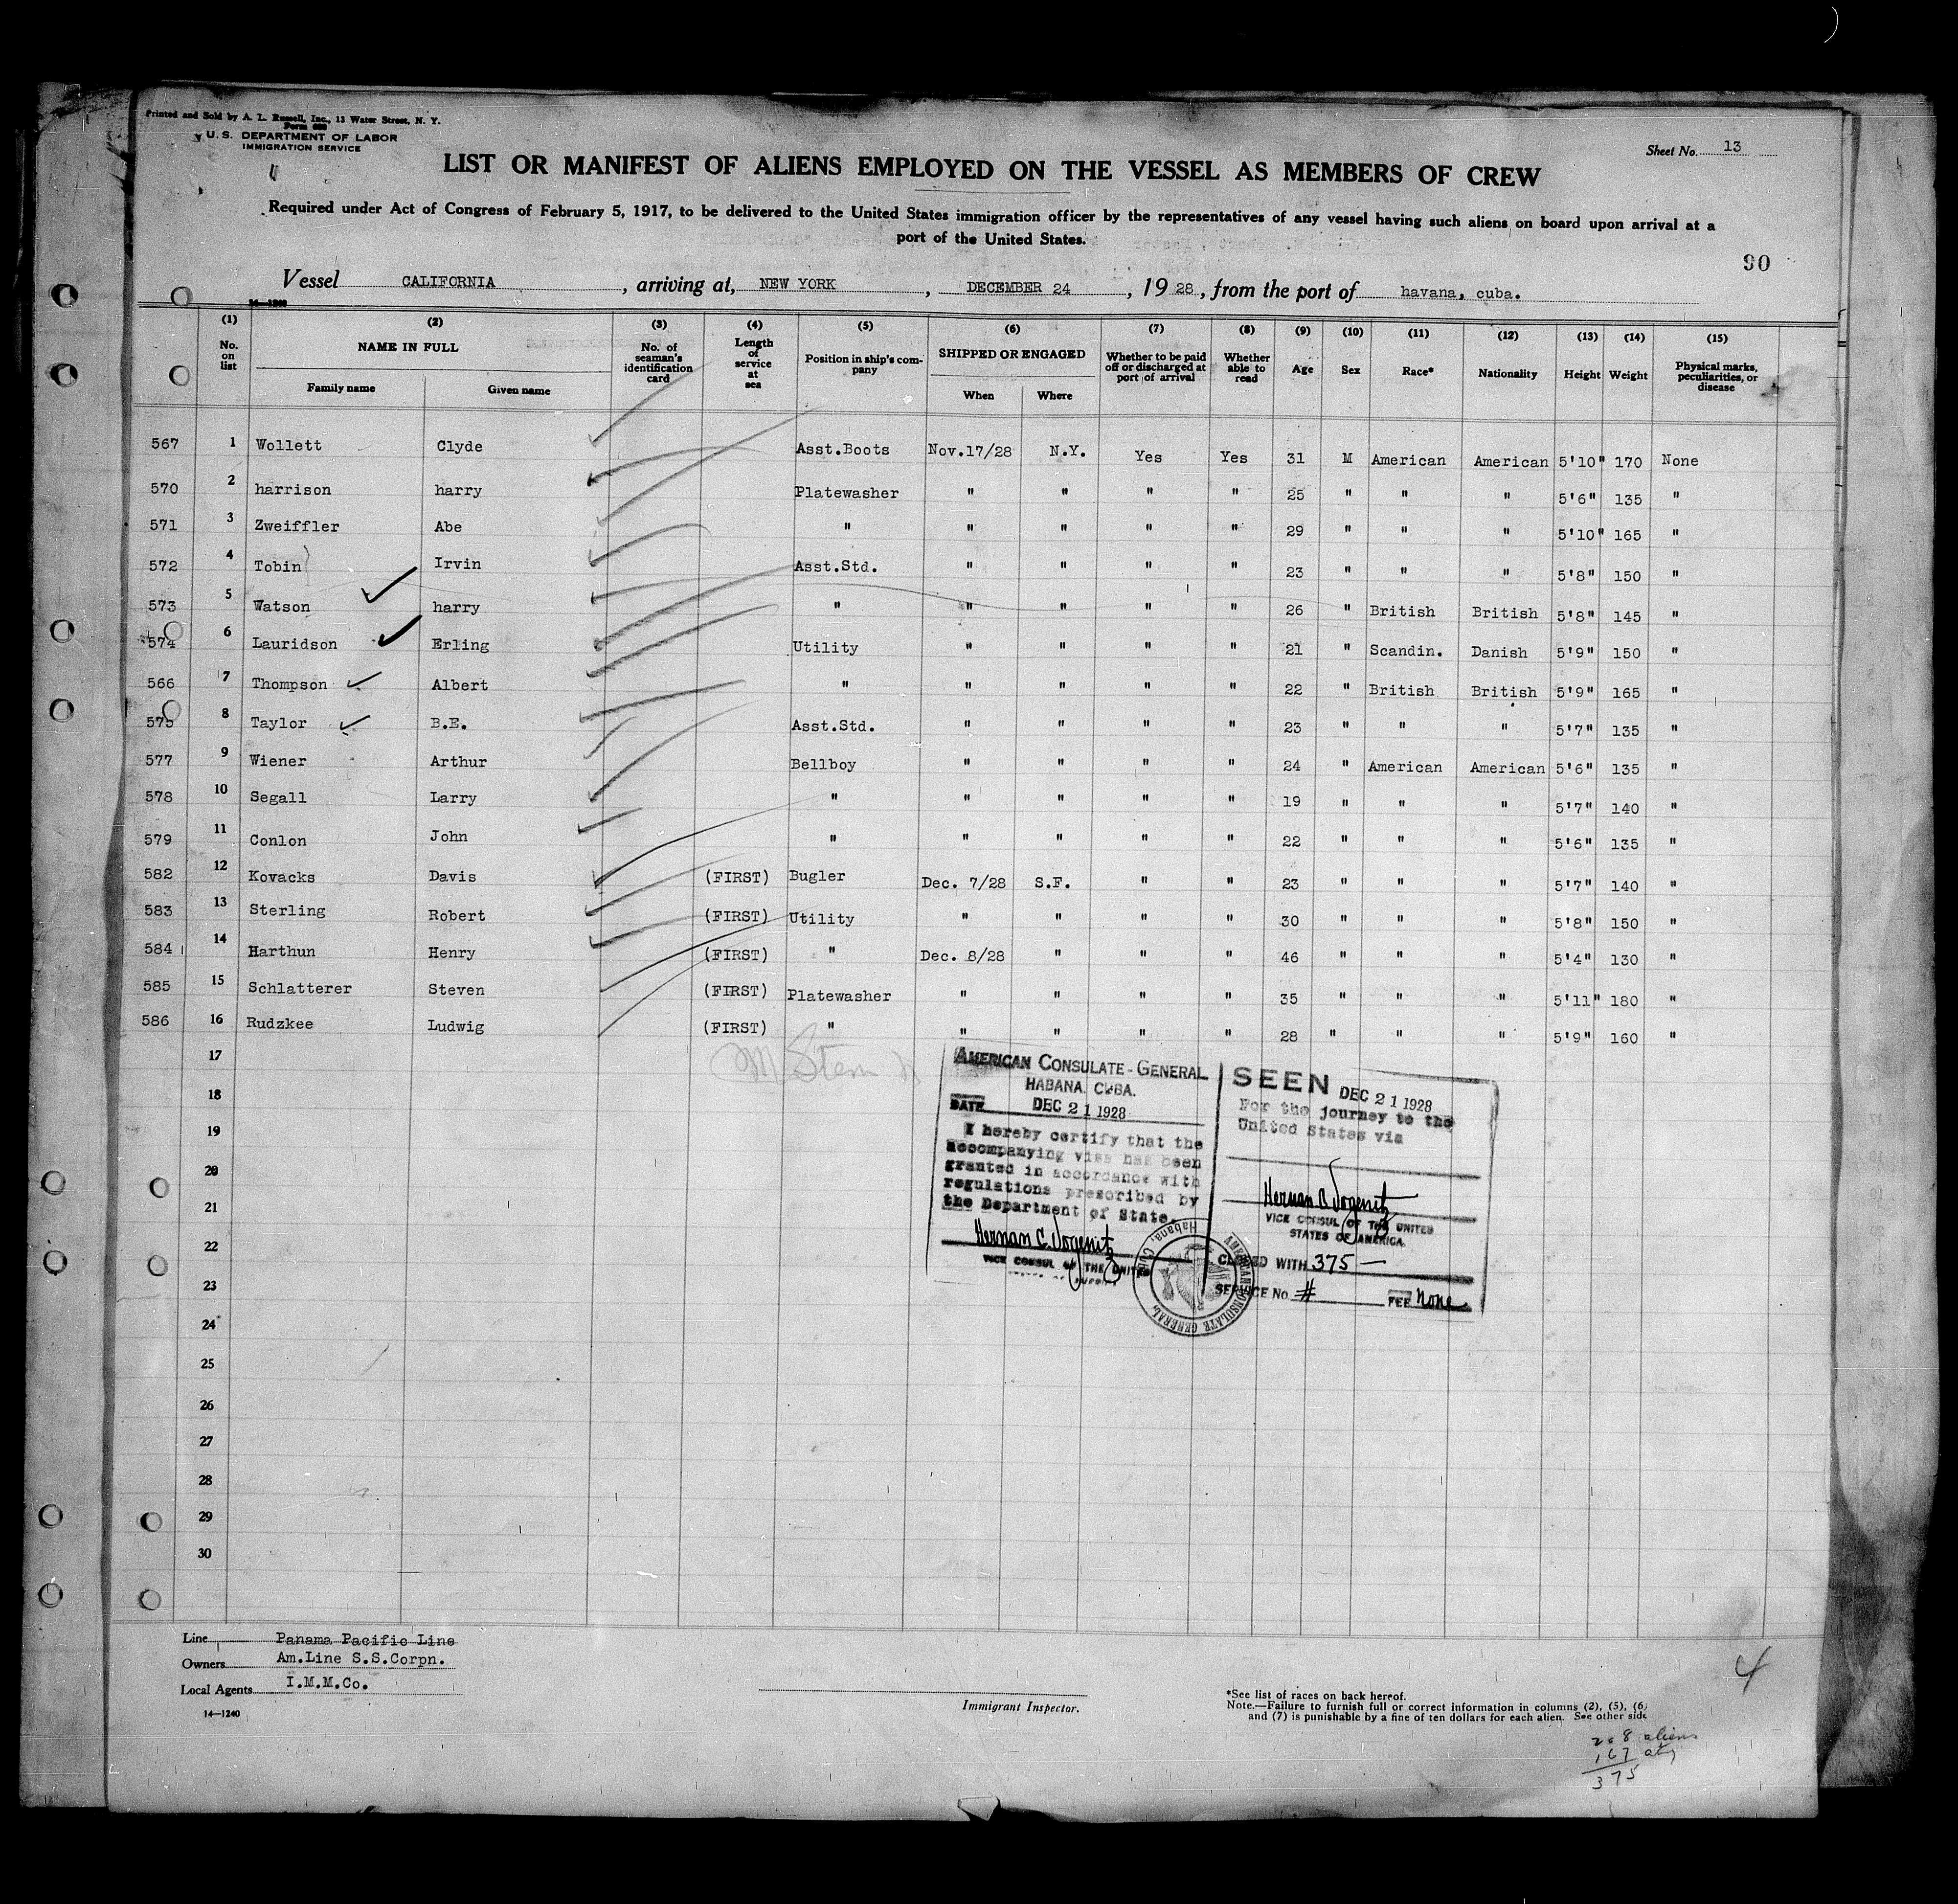 Printed and Sold by A. L. Russell, Inc., 13 Water Street, N. Y.
Form 680
U. S. DEPARTMENT OF LABOR
IMMIGRATION SERVICE
Sheet No. 13
LIST OR MANIFEST OF ALIENS EMPLOYED ON THE VESSEL AS MEMBERS OF CREW
Required under Act of Congress of February 5, 1917, to be delivered to the United States immigration officer by the representatives of any vessel having such aliens on board upon arrival at a
port of the United States.
90
Vessel CALIFORNIA, arriving at, NEW YORK, DECEMBER 24, 1928, from the port of havana, cuba.
14—1240
(1) (2) (3) (4) (5) (6) (7) (8) (9) (10) (11) (12) (13) (14) (15)
No. on list NAME IN FULL Family name Given name No. of seaman's identification card Length of service at sea Position in ship's company SHIPPED OR ENGAGED When Where Whether to be paid off or discharged at port of arrival Whether able to read Age Sex Race* Nationality Height Weight Physical marks, peculiarities, or disease
567 1 Wollett Clyde Asst.Boots Nov.17/28 N.Y. Yes Yes 31 M American American 5'10" 170 None
570 2 harrison harry Platewasher " " " " 25 " " " 5'6" 135 "
571 3 Zweiffler Abe " " " " " 29 " " " 5'10" 165 "
572 4 Tobin Irvin Asst.Std. " " " " 23 " " " 5'8" 150 "
573 5 Watson harry " " " " " 26 " British British 5'8" 145 "
574 6 Lauridson Erling Utility " " " " 21 " Scandin. Danish 5'9" 150 "
566 7 Thompson Albert " " " " " 22 " British British 5'9" 165 "
575 8 Taylor B.E. Asst.Std. " " " " 23 " " " 5'7" 135 "
577 9 Wiener Arthur Bellboy " " " " 24 " American American 5'6" 135 "
578 10 Segall Larry " " " " " 19 " " " 5'7" 140 "
579 11 Conlon John " " " " " 22 " " " 5'6" 135 "
582 12 Kovacks Davis (FIRST) Bugler Dec. 7/28 S.F. " " 23 " " " 5'7" 140 "
583 13 Sterling Robert (FIRST) Utility " " " " 30 " " " 5'8" 150 "
584 14 Harthun Henry (FIRST) " Dec. 8/28 " " " 46 " " " 5'4" 130 "
585 15 Schlatterer Steven (FIRST) Platewasher " " " " 35 " " " 5'11" 180 "
586 16 Rudzkee Ludwig (FIRST) " " " " " 28 " " " 5'9" 160 "
17
18
19
20
21
22
23
24
25
26
27
28
29
30
AMERICAN CONSULATE-GENERAL
HABANA, CUBA.
DATE DEC 21 1928
I hereby certify that the
accompanying visa has been
granted in accordance with
regulations prescribed by
the Department of State.
VICE CONSUL OF THE UNITED
SEEN DEC 21 1928
For the journey to the
United States via
VICE CONSUL OF THE UNITED
STATES OF AMERICA.
CLOSED WITH 375 —
SERVICE No. # FEE none
AMERICAN CONSULATE GENERAL, Habana, Cuba
Line Panama Pacific Line
Owners Am.Line S.S.Corpn.
Local Agents I.M.M.Co.
14—1240
Immigrant Inspector.
*See list of races on back hereof.
Note.—Failure to furnish full or correct information in columns (2), (5), (6)
and (7) is punishable by a fine of ten dollars for each alien. See other side
4
208 aliens
167
375